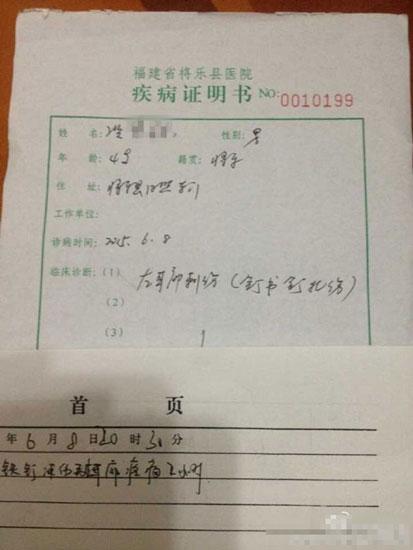 福建省将乐县医院
疾病证明书 NO:0010199
姓 名: 性别: 男
年 龄: 4岁 籍贯: 将乐
住 址: 将乐县
工作单位:
诊病时间: 2015. 6. 8
临床诊断: (1) 左耳廓刺伤 (钉书钉扎伤)
(2)
(3)
首 页
年 6 月 8 日 20 时 30 分
耳廓疼痛